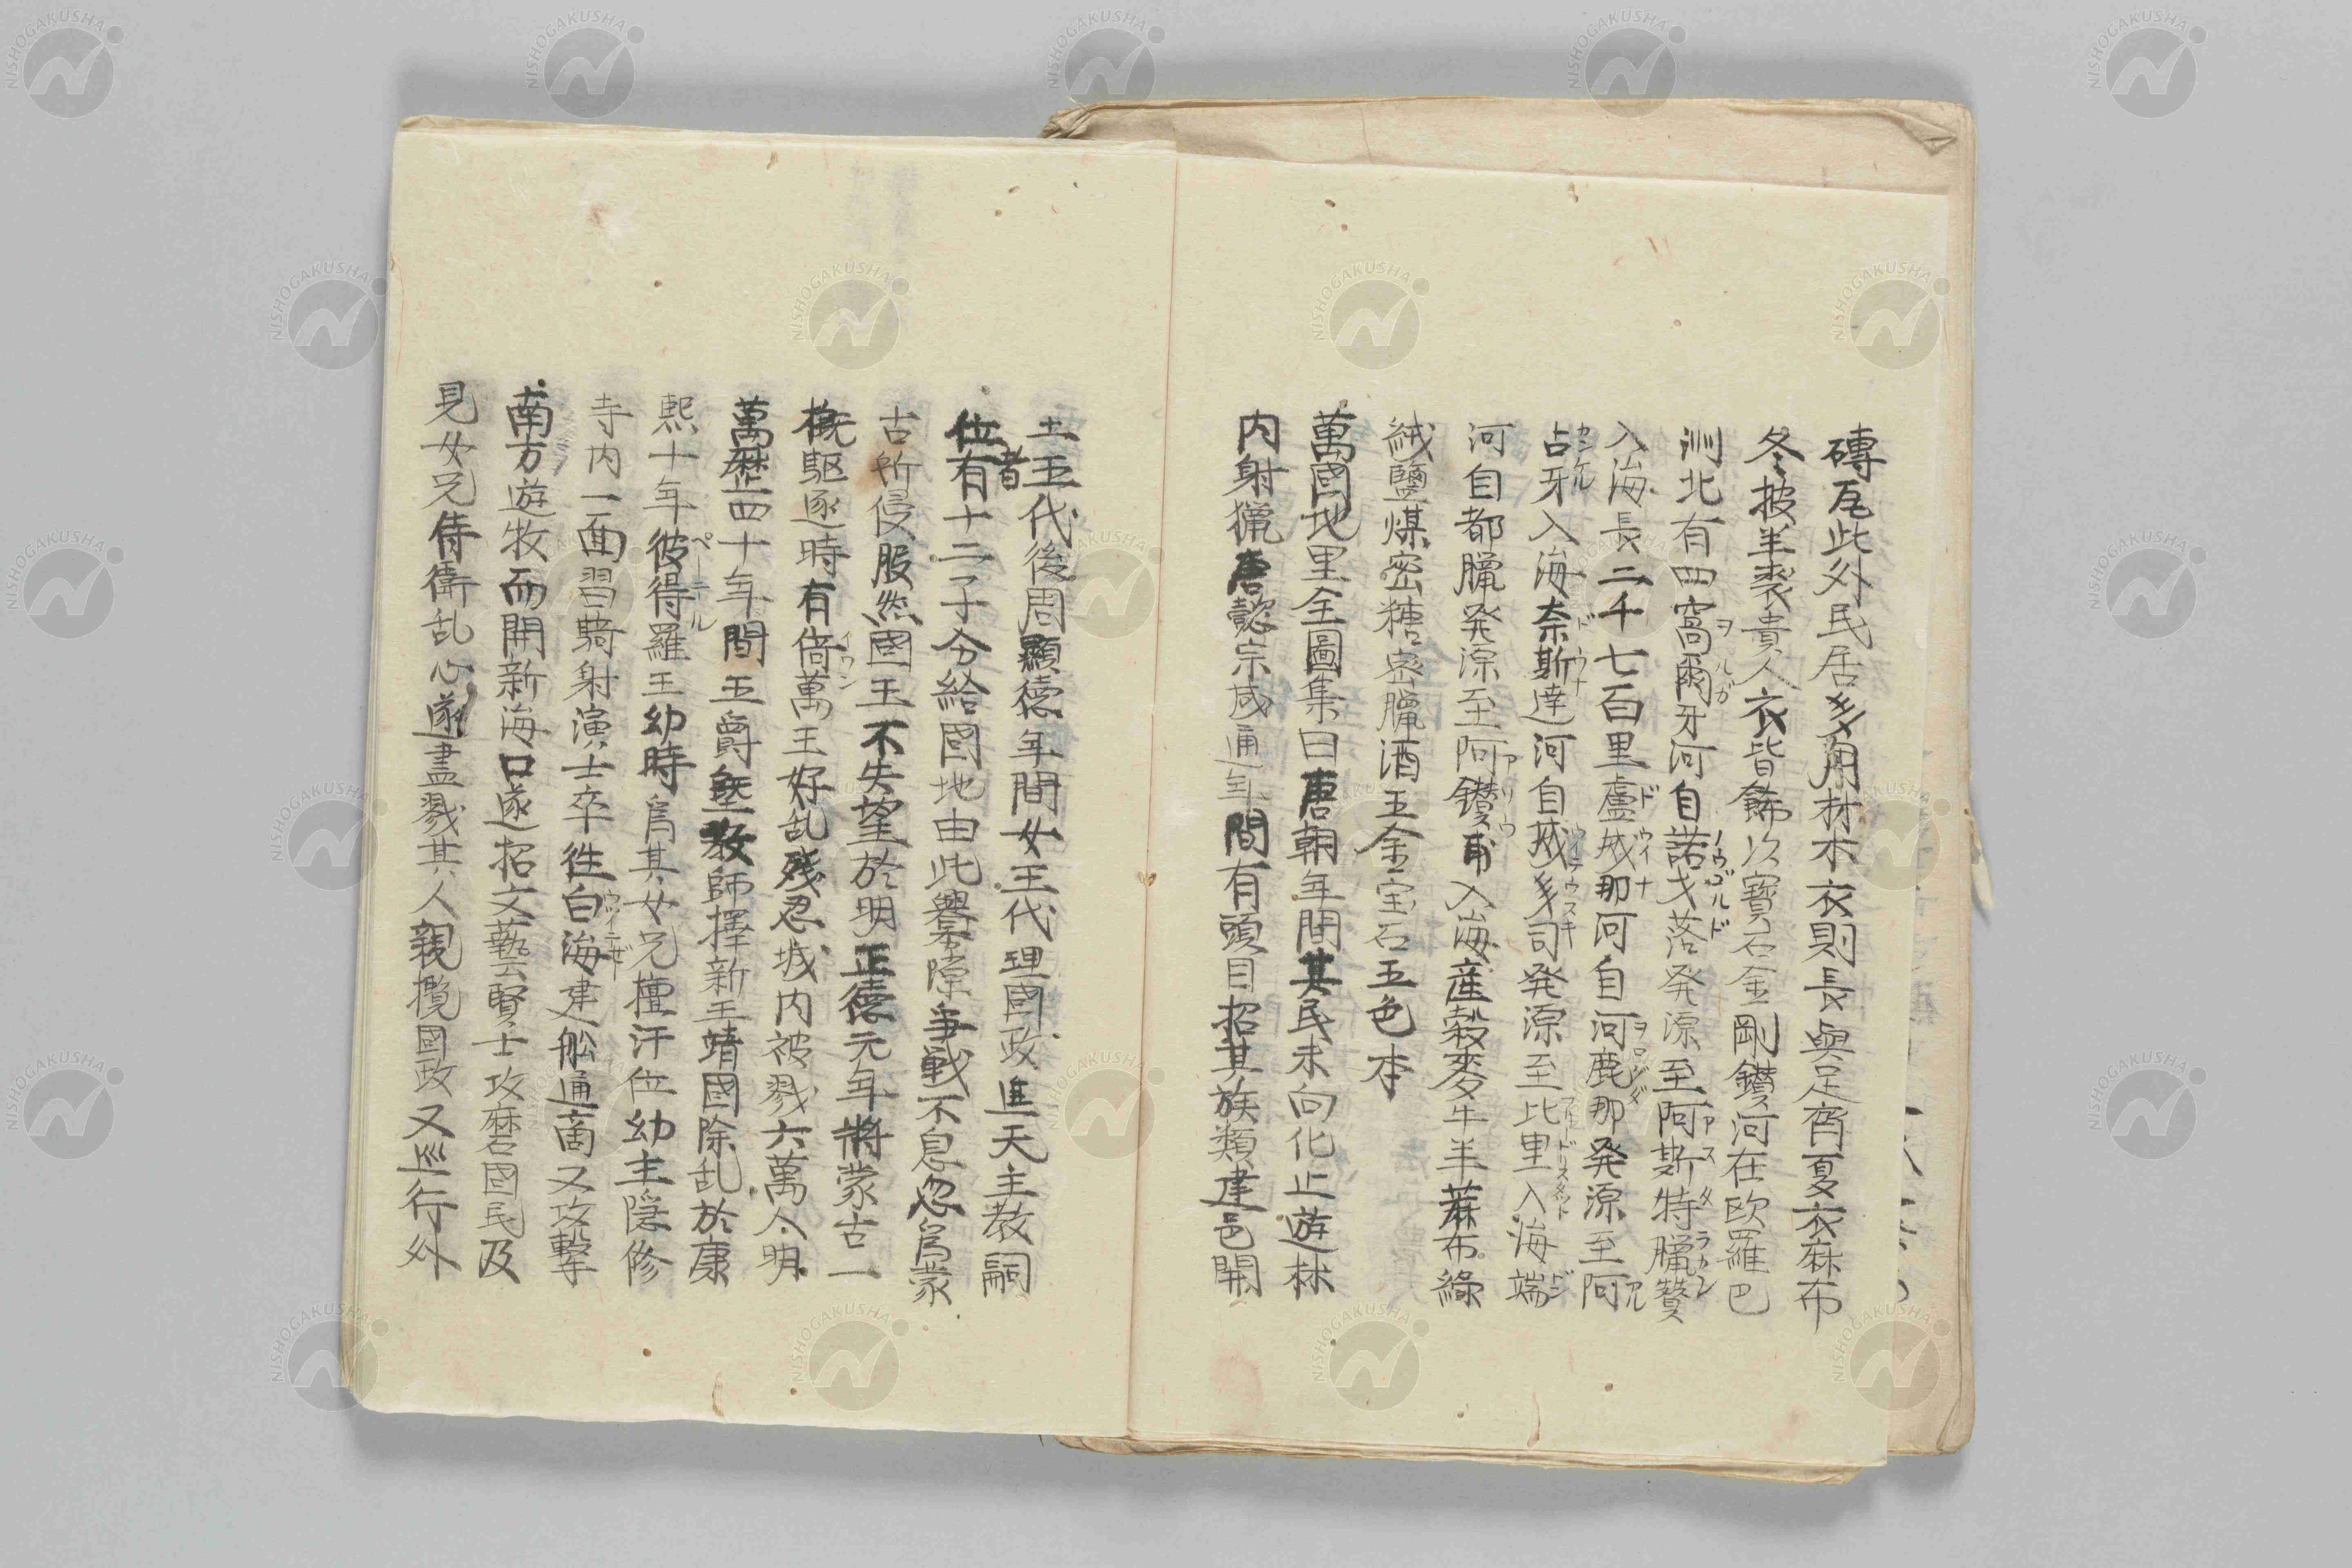 磚瓦此外民居多角材木衣則長與足齊夏衣麻布
冬披羊裘貴人衣皆飾以寶石金剛鑚河在欧羅巴
洲北有四窩爾牙河自諾戈落発源至阿斯特臘贊
ヲルガ ノヴゴルド アスタラカン
入海長二千七百里盧威那河自河鹿那発源至阿
ドウイナ ヲロジダ アル
占牙入海奈斯達河自威多司発源至比里入海端
カンケル ドウナ ウイテウスキ ドン
河自都臘発源至阿鑚甫入海産穀麥牛羊蔴布綠
アリウ
絨鹽煤密糖密臘酒五金宝石五色木
萬國地里全圖集曰唐朝年間其民未向化止遊林
内射獵唐懿宗咸通年間有頭目招其族類建邑開
土王代後周顯德年間女王代理國政進天主教嗣
位者有十二子分給國地由此釁隙爭戰不息忽為蒙
古所侵服然國王不失望於明正德元年將蒙古一
概駆逐時有倚萬王好乱殘忍城内被戮六萬人明
イワン
萬歷四十年間五爵暨教師擇新王靖國除乱於康
熙十年彼得羅王幼時為其女兄檀汗位幼主隠修
ペーテル
寺内一面習騎射演士卒徃白海建船通商又攻擊
南方遊牧而開新海口遂招文藝賢士攻磨國民及
見女兄侍衛乱心遂盡戮其人親攬國政又巡行外
NISHOGAKUSHA